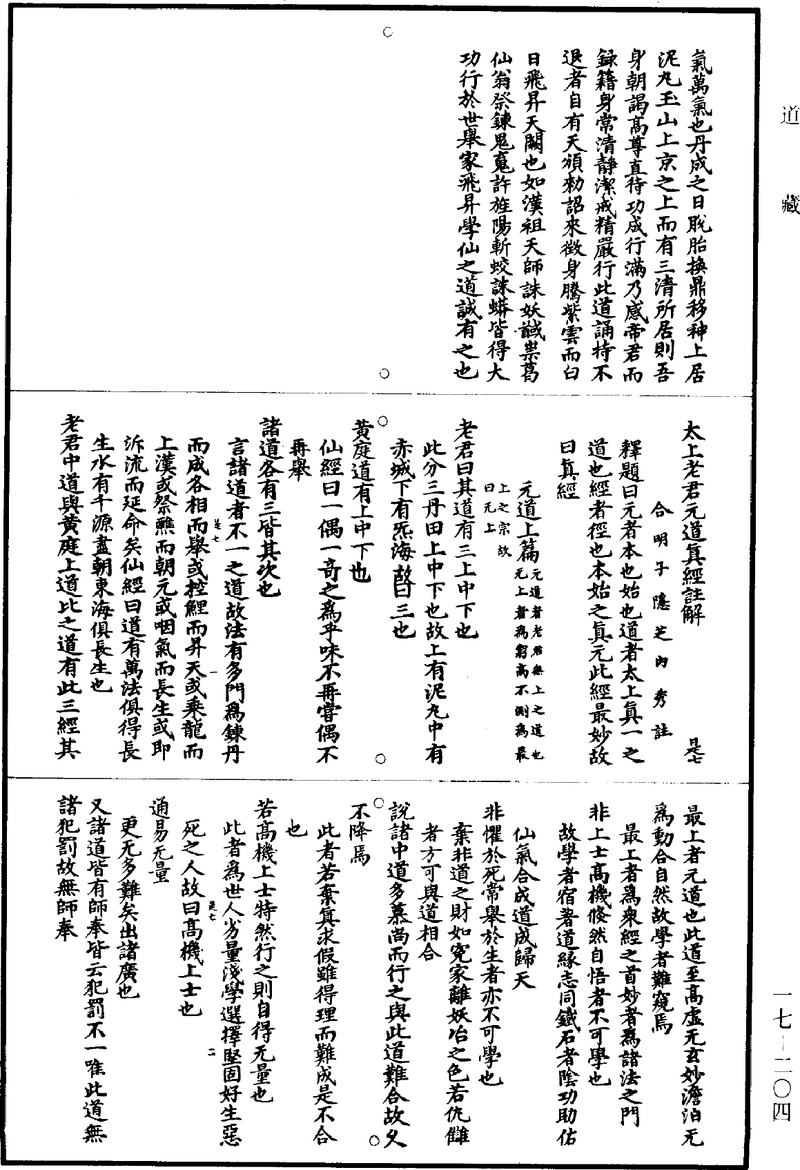 道藏
氣萬氣也丹成之日脫胎換鼎移神上居
泥丸玉山上京之上而有三清所居則吾
身朝謁高尊直待功成行滿乃感帝君而
録籍身常清靜潔戒精嚴行此道誦持不
退者自有天頒勑詔來徵身騰紫雲而白
日飛昇天闕也如漢祖天師誅妖馘祟葛
仙翁祭鍊鬼魂許旌陽斬蛟誅蟒皆得大
功行於世舉家飛昇學仙之道誠有之也
太上老君元道真經註解
是七
合明子隱芝內秀註
釋題曰元者本也始也道者太上真一之
道也經者徑也本始之真元此經最妙故
曰真經
元道上篇
元道者老君無上之道也
元上者為窮高不測為最
上之宗故
曰元上
老君曰其道有三上中下也
此分三丹田上中下也故上有泥丸中有
赤城下有炁海故曰三也
黃庭道有上中下也
仙經曰一偶一奇之為乎味不再嘗偶不
再舉
諸道各有三皆其次也
言諸道者不一之道故法有多門為鍊丹
而成各相而舉或控鯉而昇天或乘龍而
上漢或祭醮而朝元或咽氣而長生或即
泝流而延命矣仙經曰道有萬法俱得長
生水有千源盡朝東海俱長生也
老君中道與黃庭上道比之道有此三經其
是七
一
最上者元道也此道至高虛无玄妙澹泊无
為動合自然故學者難窺焉
最上者為衆經之首妙者為諸法之門
非上士高機倏然自悟者不可學也
故學者宿著道緣志同鐵石者陰功助佑
仙氣合成道成歸天
非懼於死常舉於生者亦不可學也
棄非道之財如冤家離妖冶之色若仇讎
者方可與道相合
說諸中道多慕尚而行之與此道難合故久
不降焉
此者若棄真求假雖得理而難成是不合
也
若高機上士特然行之則自得无量也
此者為世人劣量淺學選擇堅固好生惡
死之人故曰高機上士也
通易无量
更无多難矣出諸廣也
又諸道皆有師奉皆云犯罰不一唯此道無
諸犯罰故無師奉
是七
二
一七—二〇四